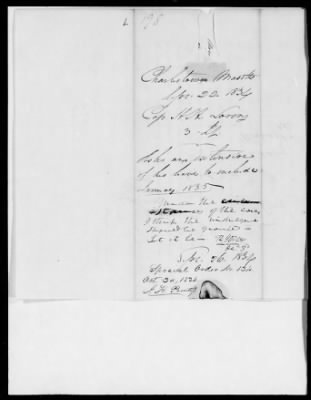 L 198
Charlestown Mass
Apr. 22. 1834
Cap H. H. Loring
3 Af
Asks an extension
of his leave to include
January 1835
Under the
of the case,
I think the indulgence
should be granted
Let it be
26. 1834
Special Order No 134
Oct 30, 1834